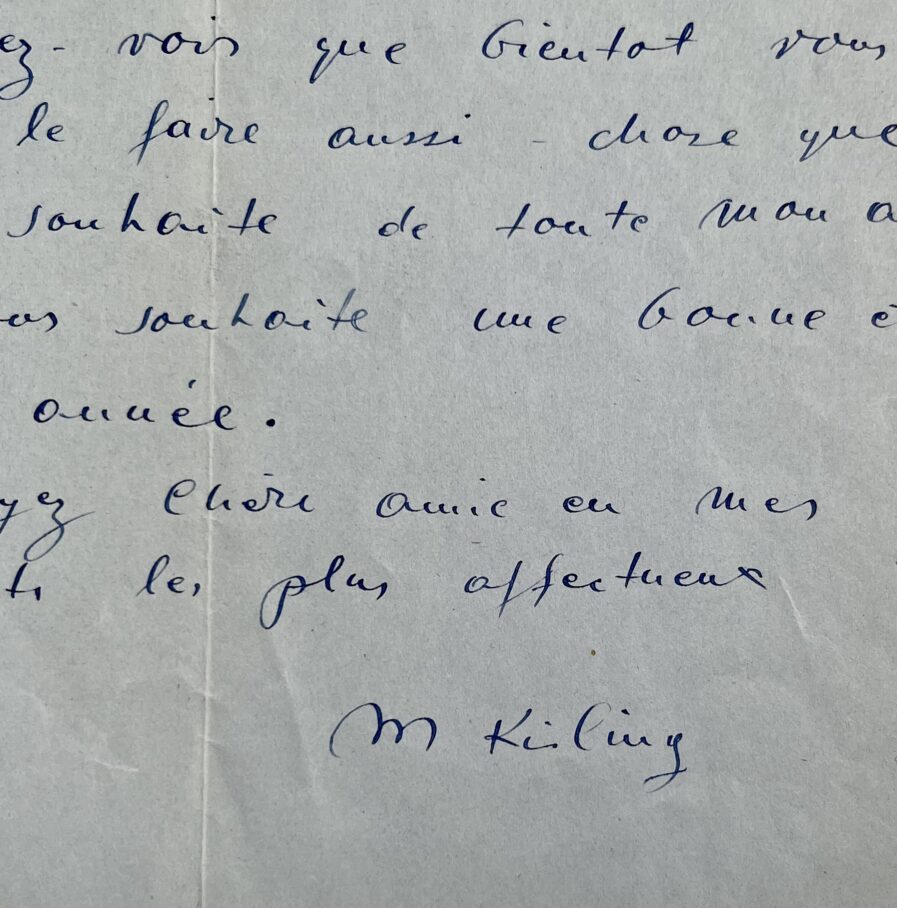 ez - vois que bientot vous
le faire aussi - chose que
souhaite de toute mon a
us souhaite une bonne e
année.
yez chère amie en mes
ts les plus affectueux
M Kisling